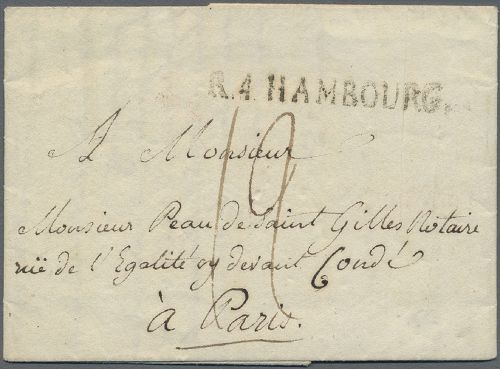 R.4 HAMBOURG.
A Monsieur
19
Monsieur Peau de Saint Gilles Notaire
ruë de l'Egalité cy devant Condé
à Paris.